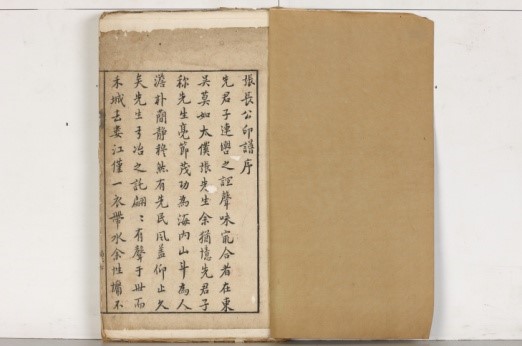 張長公印譜序
先君子連轡之誼聲味宜合者在東
吳莫如太僕張先生余猶憶先君子
称先生亮節茂功為海內山斗為人
澹朴簡靜穆然有先民風蓋仰止久
矣先生弓冶之託翩〻有聲于世而
禾城去婁江僅一衣帶水余性懶不